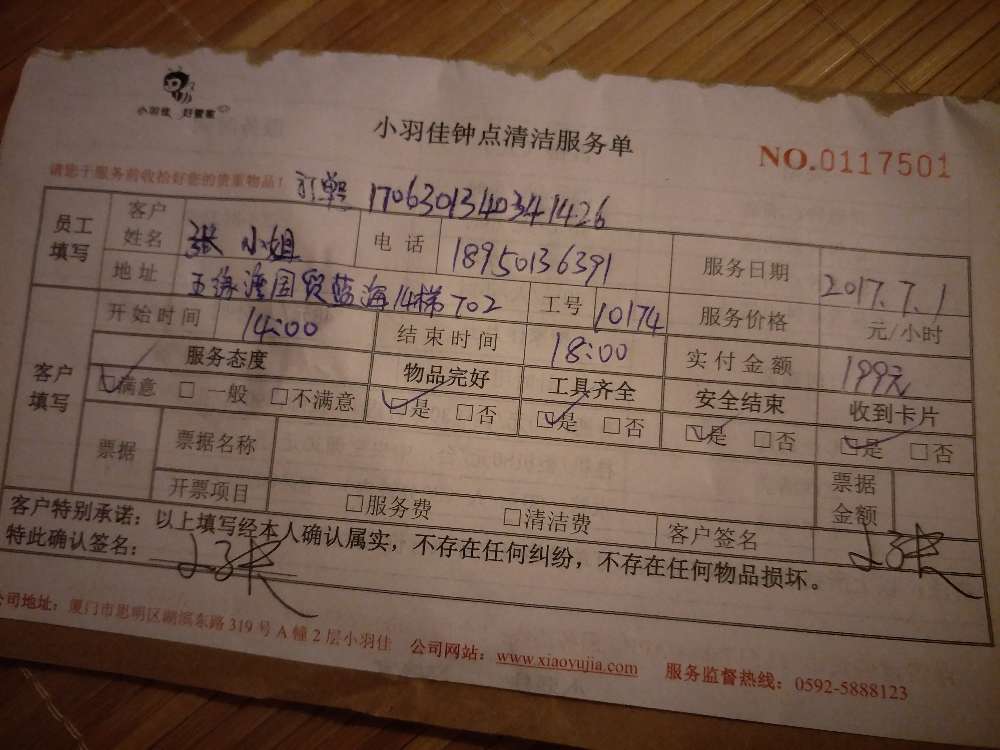 小羽佳 好管家
小羽佳钟点清洁服务单
NO.0117501
请您于服务前收拾好您的贵重物品！ 订单号 17063013403441426
员工填写 客户姓名 张小姐 电话 18950136391 服务日期 2017.7.1
地址 五缘湾国贸蓝海14梯702 工号 10174 服务价格 元/小时
客户填写 开始时间 14:00 结束时间 18:00 实付金额 199元
服务态度 物品完好 工具齐全 安全结束 收到卡片
☑满意 □一般 □不满意 ☑是 □否 ☑是 □否 ☑是 □否 ☑是 □否
票据 票据名称 票据金额
开票项目 □服务费 □清洁费 客户签名
客户特别承诺：以上填写经本人确认属实，不存在任何纠纷，不存在任何物品损坏。
特此确认签名：
公司地址：厦门市思明区湖滨东路319号A幢2层小羽佳 公司网站：www.xiaoyujia.com 服务监督热线：0592-5888123